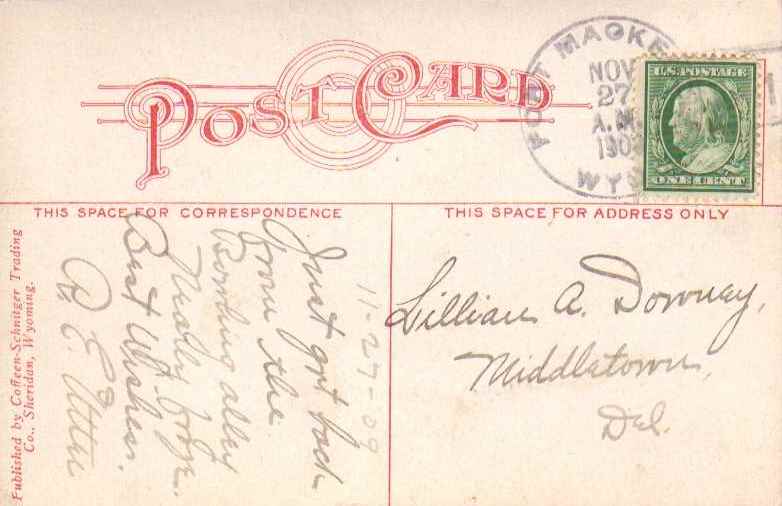 POST CARD
FORT MACKE
NOV
27
A.M.
190
WYS
U.S. POSTAGE
ONE CENT
THIS SPACE FOR CORRESPONDENCE
THIS SPACE FOR ADDRESS ONLY
11-27-09
Just got back
from the
Bowling alley
Nearly froze.
Best Wishes.
Lillian A. Downey,
Middletown,
Del.
Published by Coffeen-Schnitger Trading
Co., Sheridan, Wyoming.